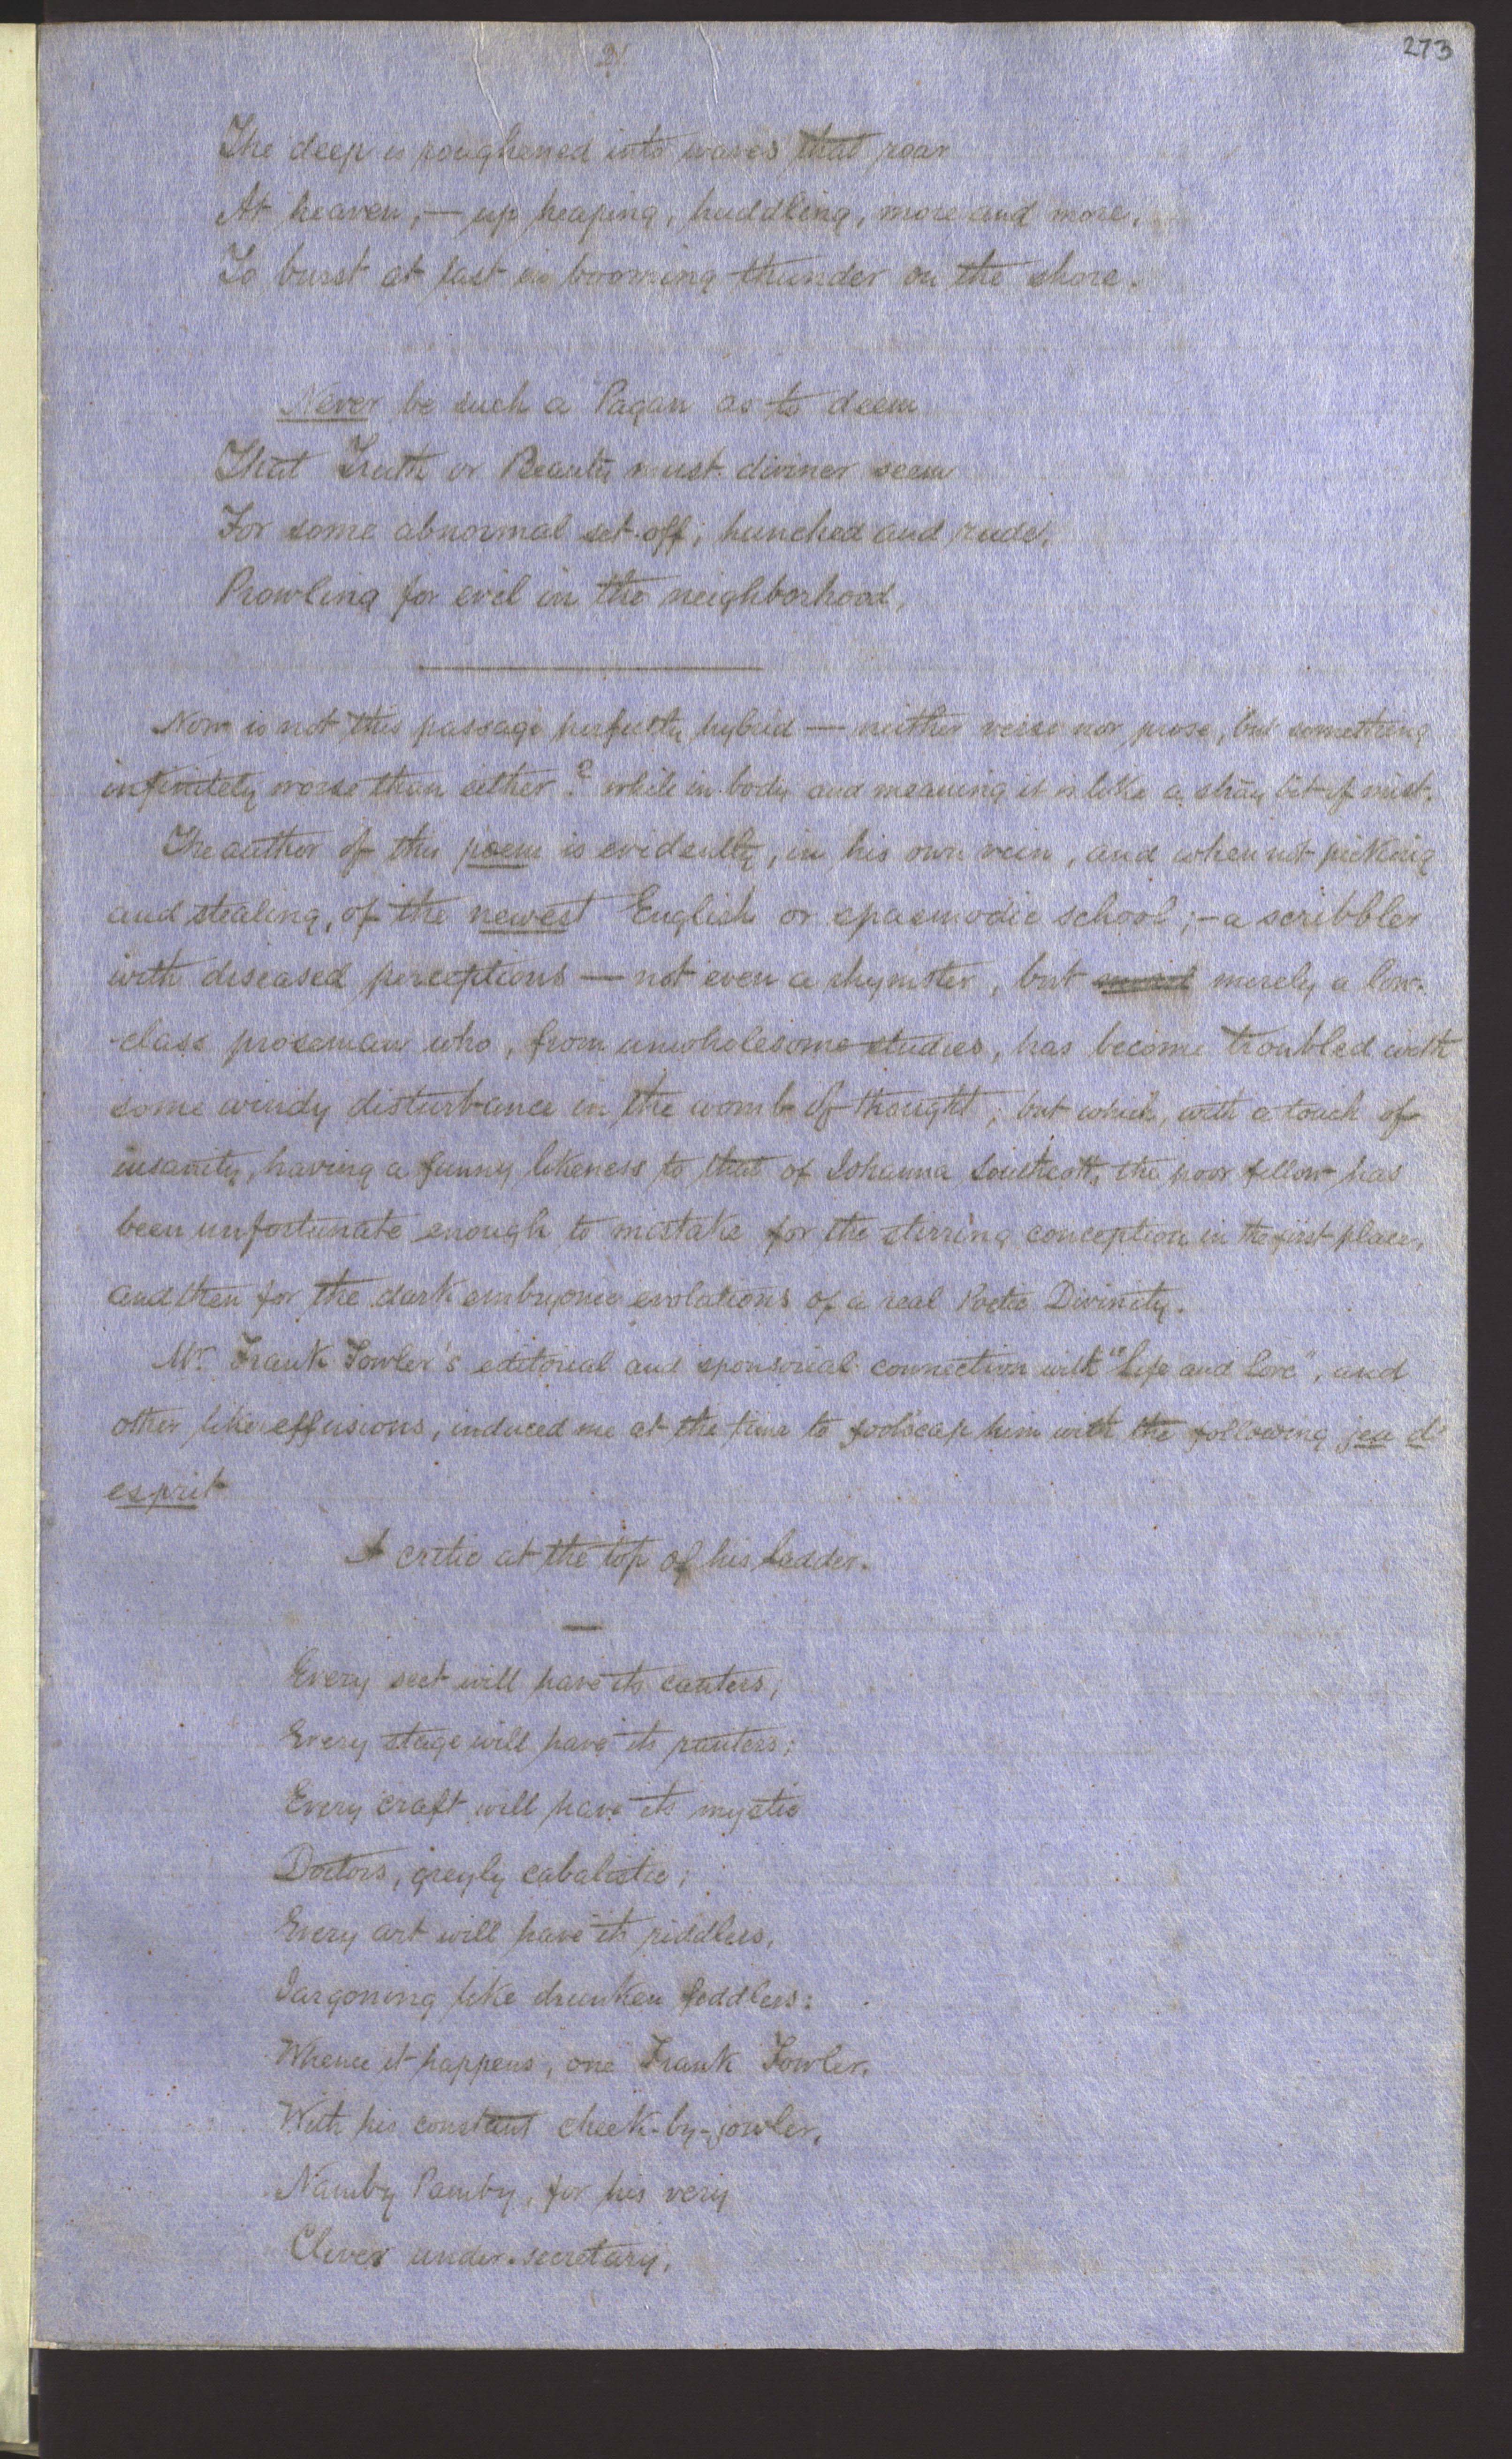 273
The deep is roughened into waves that roar
At heaven,— up heaping, huddling, more and more,
To burst at last in booming thunder on the shore.
Never be such a Pagan as to deem
That Truth or Beauty must diviner seem
For some abnormal set-off, hunched and rude,
Prowling for evil in the neighborhood.
Now is not this passage perfectly hybrid — neither verse nor prose, but something
infinitely worse than either? while in body and meaning it is like a stray bit of mist.
The author of this poem is evidently, in his own vein, and when not picking
and stealing, of the newest English or spasmodic school;— a scribbler
with diseased perceptions — not even a rhymster, but merely a low-
-class proseman who, from unwholesome studies, has become troubled with
some windy disturbance in the womb of thought; but which, with a touch of
insanity, having a funny likeness to that of Johanna Southcott, the poor fellow has
been unfortunate enough to mistake for the stirring conception in the first place,
and then for the dark embryonic evolations of a real Poetic Divinity.
Mr. Frank Fowler's editorial and sponsorial connection with "Life and Love", and
other like effusions, induced me at the time to foolscap him with the following jeu d'
esprit
A critic at the top of his ladder.
Every sect will have its canters,
Every stage will have its ranters;
Every craft will have its mystic
Doctors, greyly cabalistic;
Every art will have its riddlers,
Jargoning like drunken fiddlers:
Whence it happens, one Frank Fowler,
With his constant cheek-by-jowler,
Namby Pamby, for his very
Clever under-secretary,